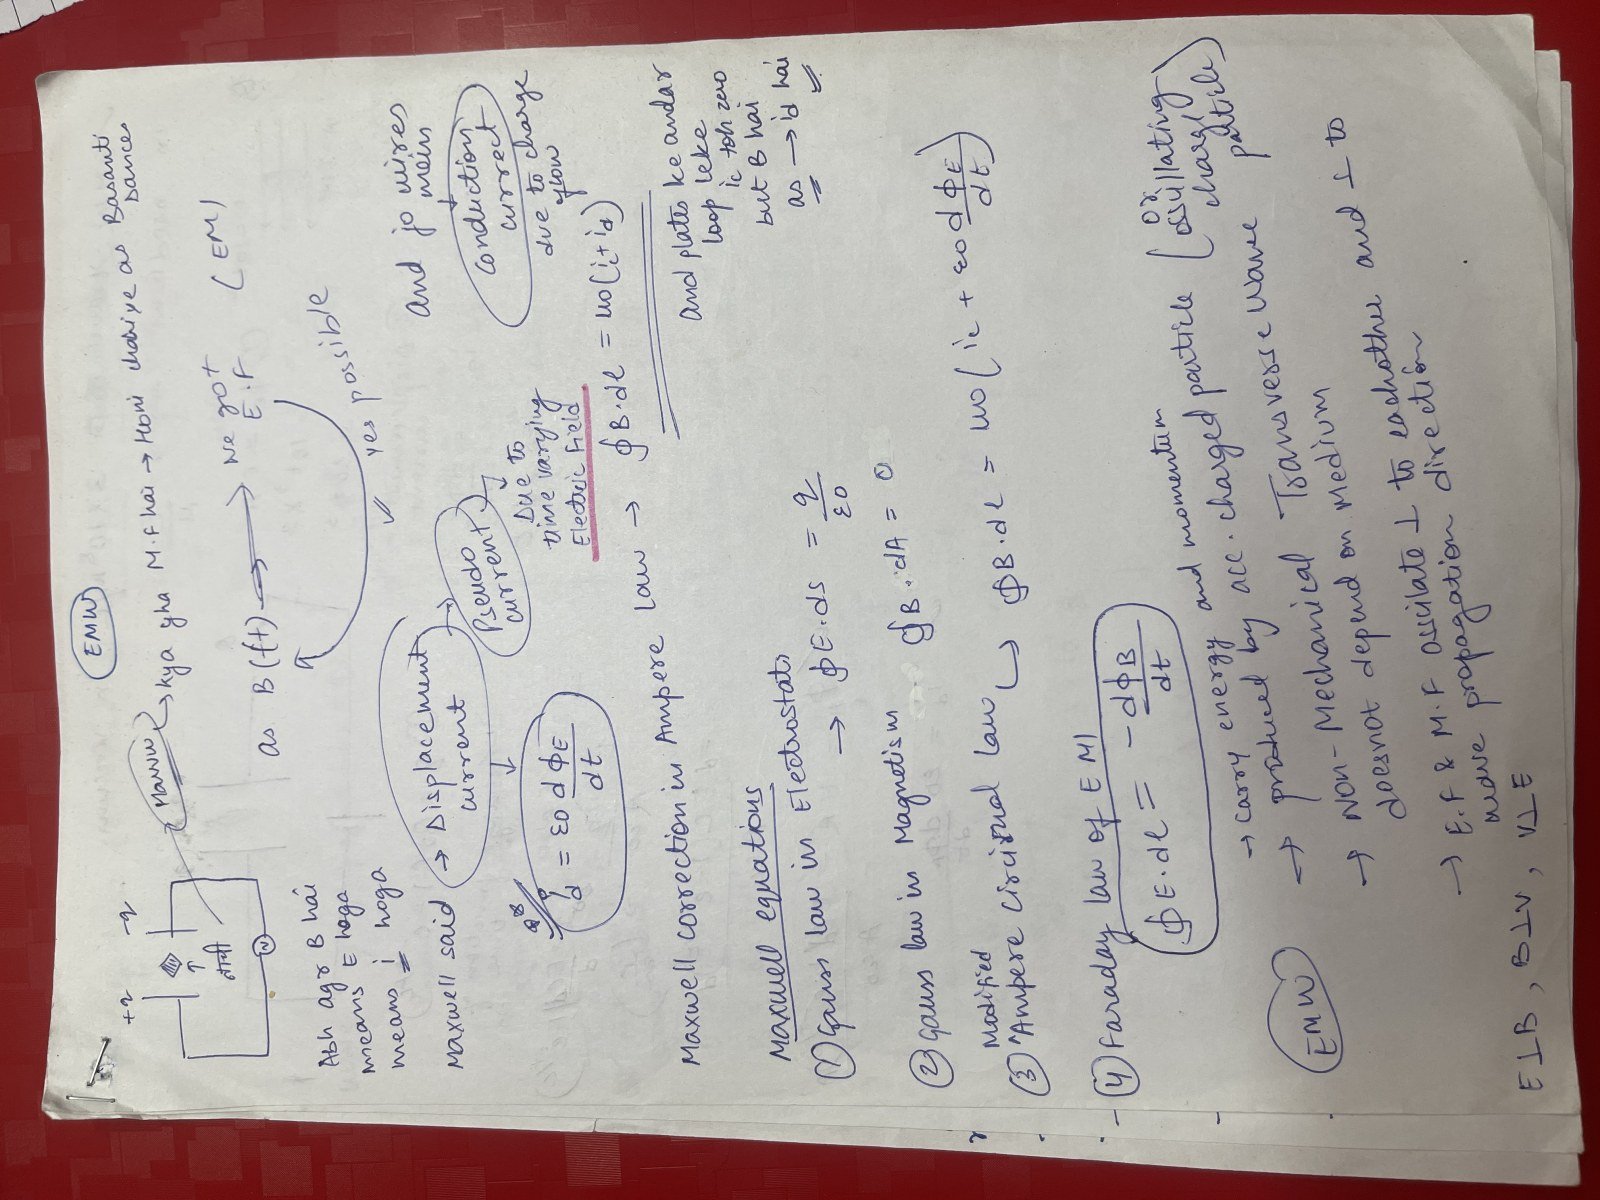 EMW
+q -q
Maxwell → kya yha M.F hai → Honi chahiye as Basanti Dances
as B(t) → we got E.F (EMI)
yes possible
Abh agr B hai
means E hoga
means i hoga
Maxwell said → Displacement current → Pseudo current
Due to time varying Electric Field
and jo wires mein
Conduction current
due to charge flow
id = ε0 dΦE/dt
Maxwell correction in Ampere law → ∮B.dl = μ0(ic+id)
and plates ke andar
loop leke
ic toh zero
but B hai
as → id hai
Maxwell equations
① Gauss law in Electrostats → ∮E.ds = q/ε0
② Gauss law in Magnetism ∮B.dA = 0
Modified
③ Ampere circitual law → ∮B.dl = μ0(ic + ε0 dΦE/dt)
④ Faraday law of EMI
∮E.dl = -dΦB/dt
EMW
→ carry energy and momentum
→ produced by acc. charged particle (or oscillating charge particle)
→ Non-Mechanical Transverse wave
→ doesnot depend on Medium
→ E.F & M.F oscilate ⊥ to eachother and ⊥ to
wave propagation direction
E⊥B, B⊥V, V⊥E